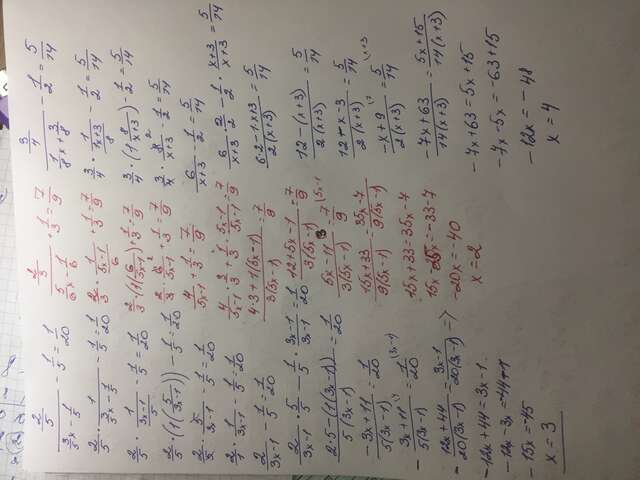 (2/5)/(3/5 x - 1/5) - 1/5 = 1/20
2/5 · 1/((3x-1)/5) - 1/5 = 1/20
2/5 · (1(5/(3x-1))) - 1/5 = 1/20
2/5 · 5/(3x-1) - 1/5 = 1/20
2/1 · 1/(3x-1) - 1/5 = 1/20
2/(3x-1) - 1/5 = 1/20
2/(3x-1) · 5/5 - 1/5 · (3x-1)/(3x-1) = 1/20
(2·5-(1(3x-1)))/(5(3x-1)) = 1/20
(-3x+11)/(5(3x-1)) = 1/20
- (3x+11)/(5(3x-1)) = 1/20 (3x-1)
- (12x+44)/(20(3x-1)) = (3x-1)/(20(3x-1)) =>
-12x+44=3x-1
-15x=-45
x=3
(2/3)/(5/6 x - 1/6) + 1/3 = 7/9
2/3 · 1/((5x-1)/6) + 1/3 = 7/9
2/3 · (1(6/(5x-1))) + 1/3 = 7/9
4/(5x-1) + 1/3 = 7/9
4/(5x-1) · 3/3 + 1/3 · (5x-1)/(5x-1) = 7/9
(4·3+1(5x-1))/(3(5x-1)) = 7/9
(12+5x-1)/(3(5x-1)) = 7/9
(15x+33)/(9(5x-1)) = (35x-7)/(9(5x-1))
15x+33=35x-7
15x-35x=-33-7
-20x=-40
x=2
(3/4)/(1/8 x + 3/8) - 1/2 = 5/14
3/4 · 1/((1x+3)/8) - 1/2 = 5/14
3/4 · (1 8/(x+3)) - 1/2 = 5/14
3/4 · 8/(x+3) 2 - 1/2 = 5/14
6/(x+3) - 1/2 = 5/14
6/(x+3) · 2/2 - 1/2 · (x+3)/(x+3) = 5/14
(6·2-1·x+3)/(2(x+3)) = 5/14
(12-(x+3))/(2(x+3)) = 5/14
(12-x-3)/(2(x+3)) = 5/14
(-x+9)/(2(x+3)) \7 = 5/14 \x+3
(-7x+63)/(14(x+3)) = (5x+15)/(14(x+3))
-7x+63=5x+15
-7x-5x=-63+15
-12x=-48
x=4